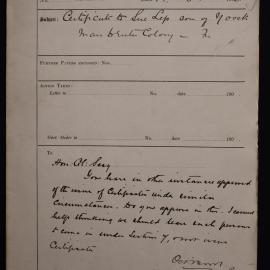 No. date 190
Subject: Certificate to Sue Lep son of Yovek
man b enter Colony
FURTHER PAPERS ENCLOSED: Nos.
ACTION TAKEN:
Letter to No. date 190
Govt. Order to No. date 190
To
Hon. Al. Secy
You have in other instances approved
of the issue of Certificates under similar
circumstances. Do you approve in this. I cannot
help thinking we should leave such persons
to come in under Section 7, & not issue
Certificate